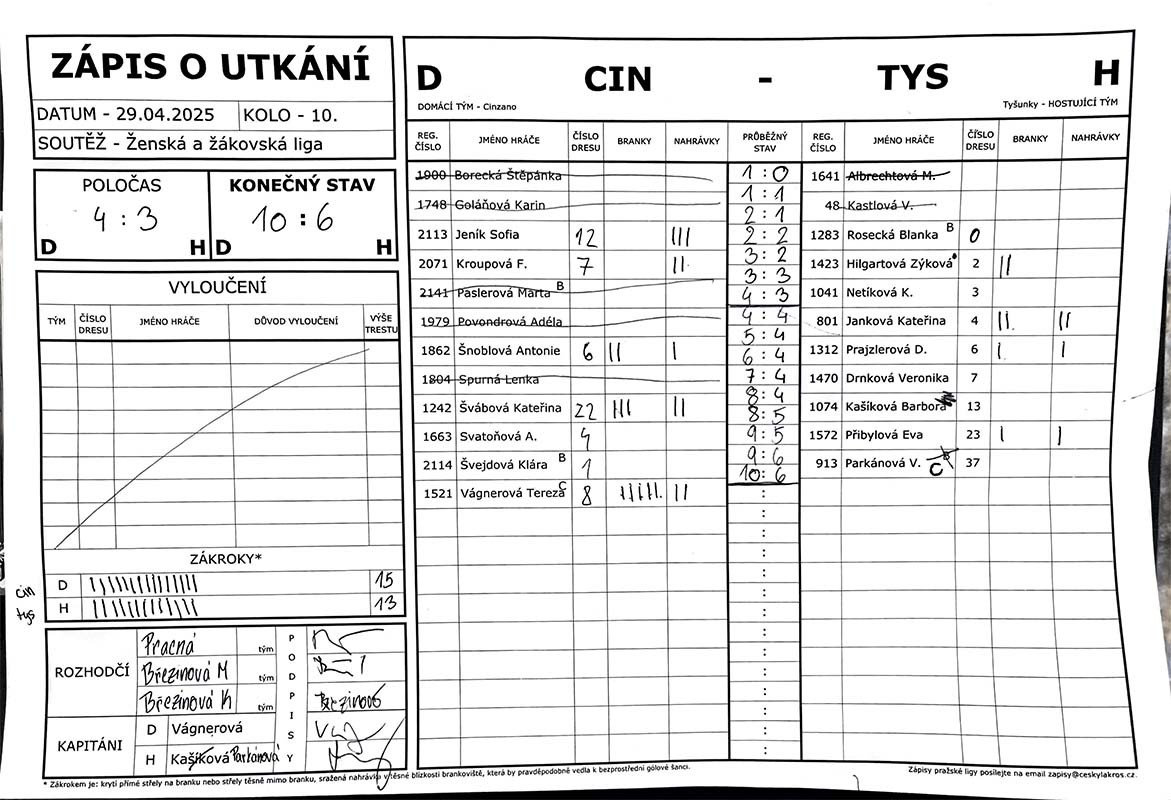 ZÁPIS O UTKÁNÍ
DATUM - 29.04.2025 KOLO - 10.
SOUTĚŽ - Ženská a žákovská liga
POLOČAS KONEČNÝ STAV
4 : 3 10 : 6
D H D H
VYLOUČENÍ
TÝM ČÍSLO DRESU JMÉNO HRÁČE DŮVOD VYLOUČENÍ VÝŠE TRESTU
ZÁKROKY*
cin D 15
tys H 13
ROZHODČÍ
Pracná tým
Březinová M tým
Březinová K tým
PODPISY
Březinová
KAPITÁNI
D Vágnerová
H Kašíková Parkánová
D CIN - TYS H
DOMÁCÍ TÝM - Cinzano Tyšunky - HOSTUJÍCÍ TÝM
REG. ČÍSLO JMÉNO HRÁČE ČÍSLO DRESU BRANKY NAHRÁVKY PRŮBĚŽNÝ STAV REG. ČÍSLO JMÉNO HRÁČE ČÍSLO DRESU BRANKY NAHRÁVKY
1900 Borecká Štěpánka
1748 Goláňová Karin
2113 Jeník Sofia 12 |||
2071 Kroupová F. 7 ||
2141 Paslerová Marta B
1979 Povondrová Adéla
1862 Šnoblová Antonie 6 || |
1804 Spurná Lenka
1242 Švábová Kateřina 22 ||| ||
1663 Svatoňová A. 4
2114 Švejdová Klára B 1
1521 Vágnerová Tereza C 8 ||||| ||
1 : 0
1 : 1
2 : 1
2 : 2
3 : 2
3 : 3
4 : 3
4 : 4
5 : 4
6 : 4
7 : 4
8 : 4
8 : 5
9 : 5
9 : 6
10 : 6
1641 Albrechtová M.
48 Kastlová V.
1283 Rosecká Blanka B 0
1423 Hilgartová Zýková 2 ||
1041 Netíková K. 3
801 Janková Kateřina 4 || ||
1312 Prajzlerová D. 6 | |
1470 Drnková Veronika 7
1074 Kašíková Barbora 13
1572 Přibylová Eva 23 | |
913 Parkánová V. C 37
* Zákrokem je: krytí přímé střely na branku nebo střely těsně mimo branku, sražená nahrávka v těsné blízkosti brankoviště, která by pravděpodobně vedla k bezprostřední gólové šanci.
Zápisy pražské ligy posílejte na email zapisy@ceskylakros.cz.